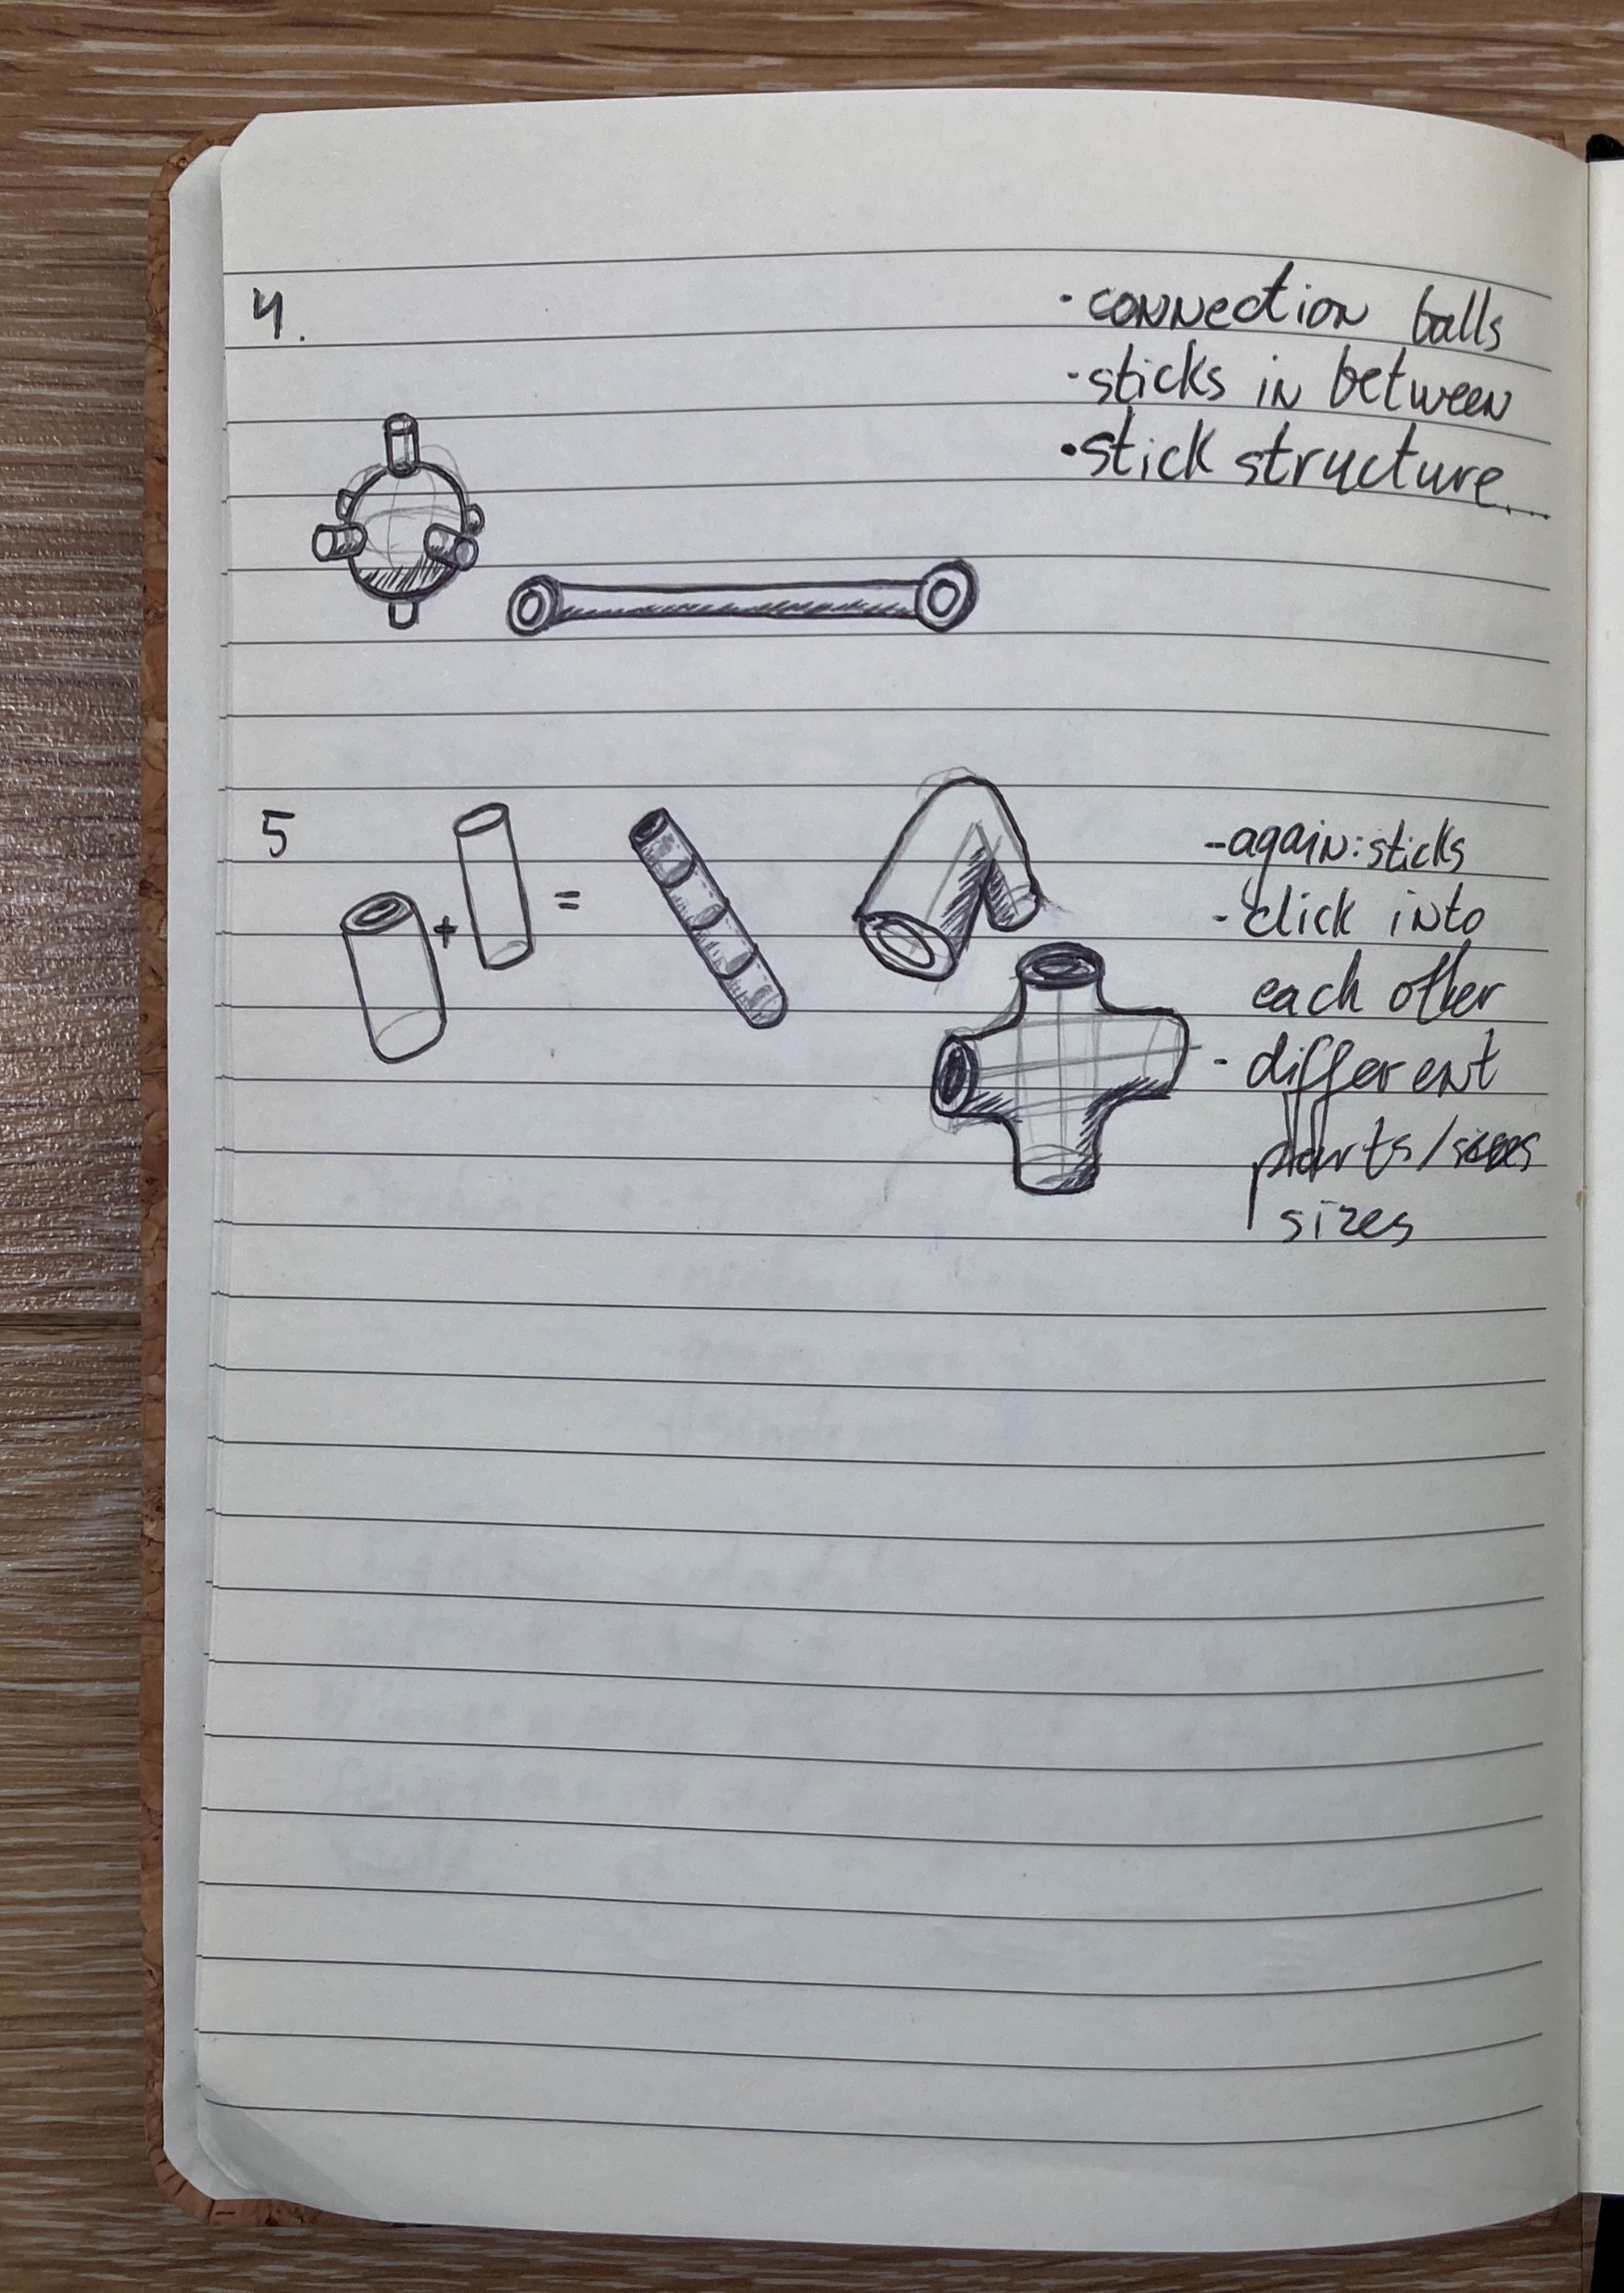 4.
· connection balls
· sticks in between
• stick structure...
5
+ =
- again: sticks
- click into
each other
- different
parts/
sizes